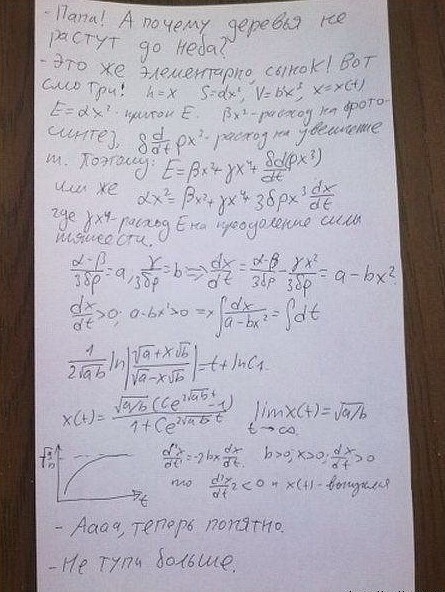 - Папа! А почему деревья не
растут до неба?
- Это же элементарно, сынок! Вот
смотри! h=x S=αx², V=bx³, x=x(t)
E=αx² - приток E. βx² - расход на фото-
синтез, δ d/dt ρx³ - расход на увеличение
m. Поэтому: E=βx²+γx⁴+δd(ρx³)/dt
или же αx²=βx²+γx⁴+3δρx³dx/dt
где γx⁴ - расход E на преодоление силы
тяжести.
α-β/3δρ=a, γ/3δρ=b => dx/dt=α-β/3δρ-γx²/3δρ=a-bx²
dx/dt>0; a-bx²>0 => ∫dx/a-bx²=∫dt
1/2√ab ln|√a+x√b/√a-x√b|=t+lnC1.
x(t)=√a/b(Ce^2√ab t-1)/1+Ce^2√ab t lim x(t)=√a/b
t→∞
√a/b d²x/dt²=-2bx dx/dt. b>0, x>0; dx/dt>0
t то d²x/dt²<0 и x(t) - выпуклая
- Аааа, теперь понятно.
- Не тупи больше.